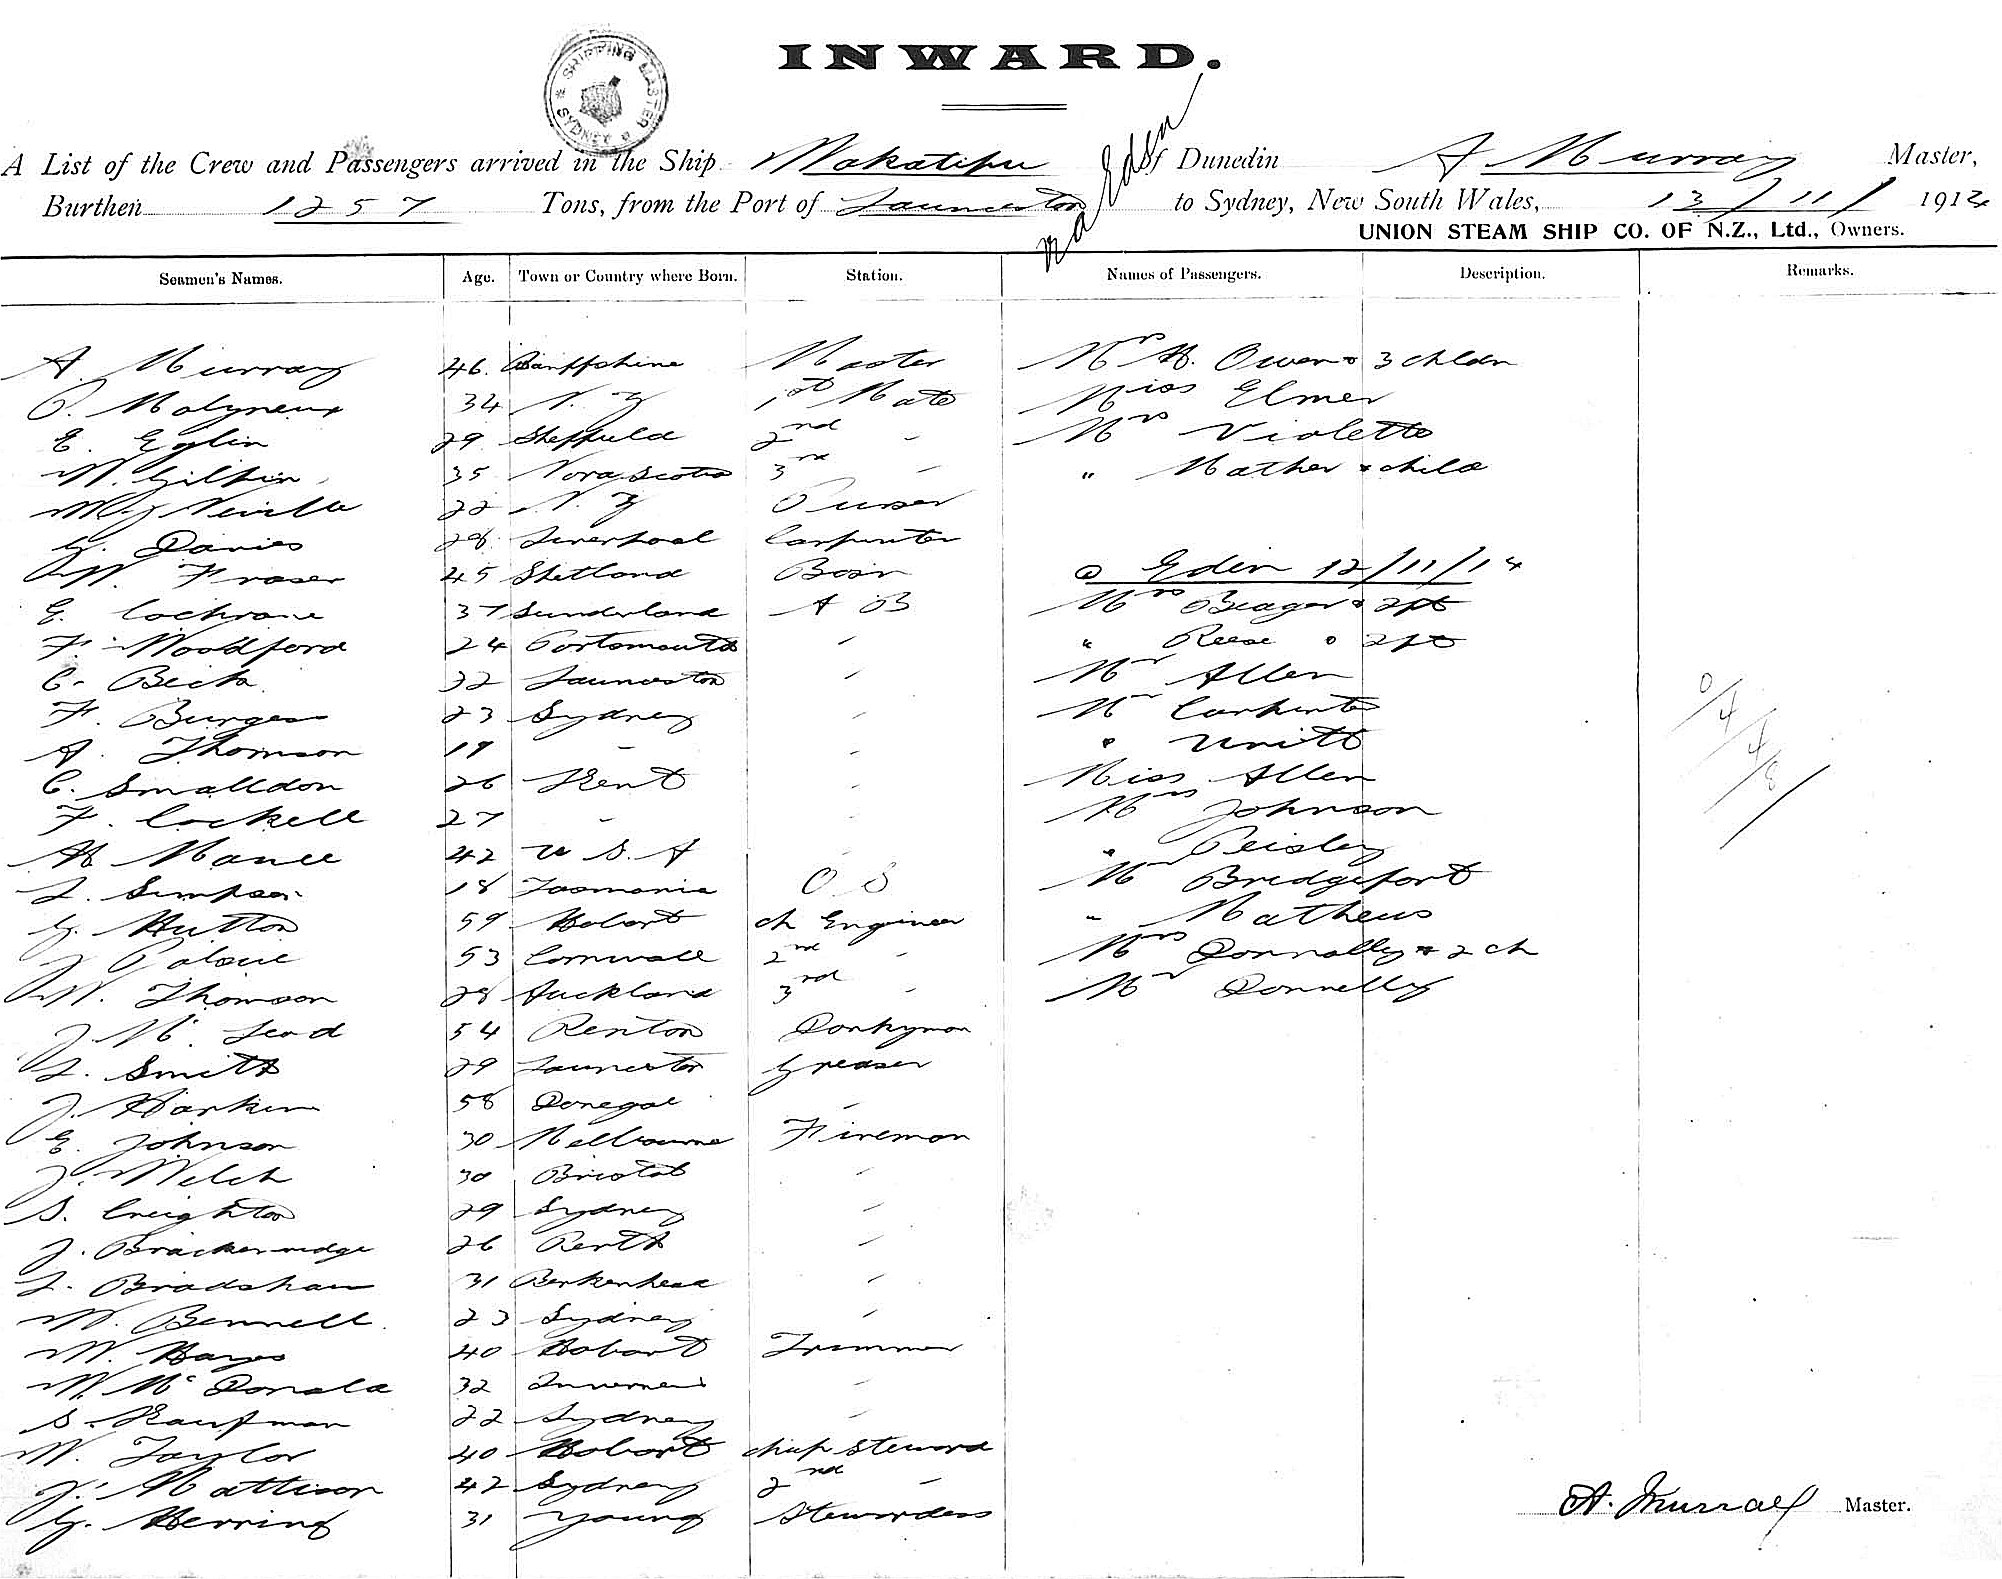 INWARD.
SHIPPING MASTER SYDNEY
via Eden
A List of the Crew and Passengers arrived in the Ship Wakatipu of Dunedin A Murray Master,
Burthen 1257 Tons, from the Port of Launceston to Sydney, New South Wales, 13/11/ 1914
UNION STEAM SHIP CO. OF N.Z., Ltd., Owners.
Seamen's Names. Age. Town or Country where Born. Station. Names of Passengers. Description. Remarks.
A. Murray 46. Banffshire Master Mrs H. Owen & 3 chldn
P. Molyneux 34 N. Z 1st Mate Miss Elmer
E. Eglin 29 Sheffield 2nd " Mrs Violette
W. Gilpin 35 Nova Scotia 3rd " " Mather & child
W. J Neville 22 N. Z Purser
G. Davies 28 Liverpool Carpenter
W. Fraser 45 Shetland Bosn @ Eden 12/11/14
E. Cochrane 37 Sunderland A B Mrs Beager & 2
F. Woodford 24 Portsmouth " " Reese & 2
C. Beck 32 Launceston " Mr Allen
F. Burgess 23 Sydney " Mr Carpenter
A. Thomson 19 " " " Unitt
C. Smalldon 26 Kent " Miss Allen
F. Cockell 27 " " Mrs Johnson
H 42 U S. A " " Peisley
L. Simpson 18 Tasmania O. S Mr Bridgefort
G. Hutton 59 Hobart Ch Engineer " Mathews
J 53 Cornwall 2nd " Mrs Donnolly & 2 ch
W. Thomson 28 Auckland 3rd " Mr Donnelly
J Mc 54 Renton Donkyman
L. Smith 29 Launceston Greaser
J. Harkin 58 Donegal "
E. Johnson 30 Melbourne Fireman
J. Welch 30 Bristol "
S. Creighton 29 Sydney "
J. Brackenridge 26 Perth "
L. Bradshaw 31 Berkenhead "
W. Bennell 23 Sydney "
W. Hayes 40 Hobart Trimmer
W. McDonald 32 Inverness "
S. Kaufman 22 Sydney "
W. Taylor 40 Hobart chief Steward
J. Mattison 42 Sydney 2nd "
G. Herring 31 Young Stewardess
A. Murray Master.